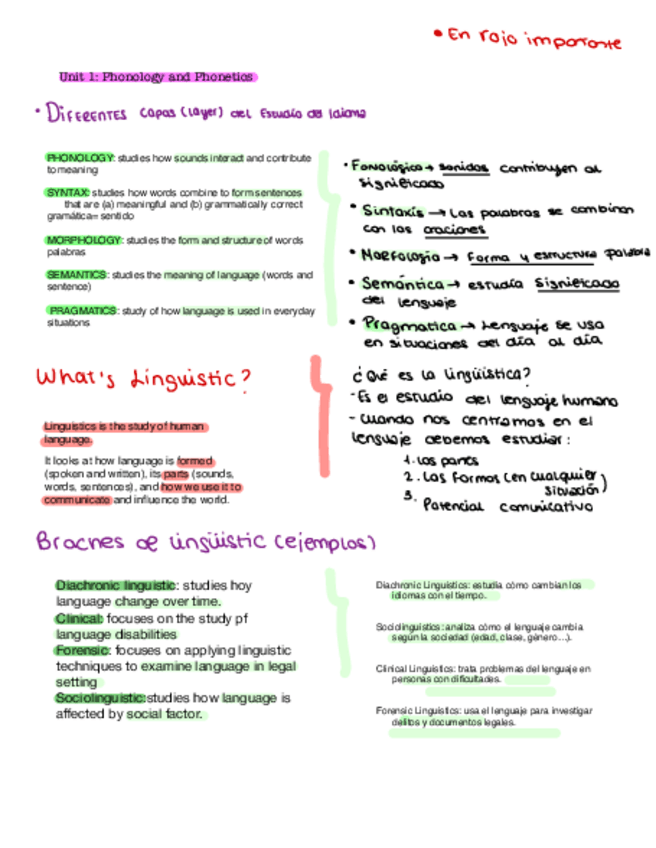 • En rojo imporante
Unit 1: Phonology and Phonetics
• Diferentes capas (layer) del Estudio del Idioma
PHONOLOGY: studies how sounds interact and contribute
to meaning
SYNTAX: studies how words combine to form sentences
that are (a) meaningful and (b) grammatically correct
gramática= sentido
MORPHOLOGY: studies the form and structure of words
palabras
SEMANTICS: studies the meaning of language (words and
sentence)
PRAGMATICS: study of how language is used in everyday
situations
• Fonológico → sonidos contribuyen al
significado
• Sintaxis → Las palabras se combinan
con las oraciones
• Morfología → Forma y estructura palabra
• Semántica → estudia significado
del lenguaje
• Pragmatica → Lenguaje se usa
en situaciones del día al día
What's Linguistic?
Linguistics is the study of human
language.
It looks at how language is formed
(spoken and written), its parts (sounds,
words, sentences), and how we use it to
communicate and influence the world.
¿Qué es la lingüística?
- Es el estudio del lenguaje humano
- Cuando nos centramos en el
lenguaje debemos estudiar:
1. Las partes
2. Las formas (en cualquier
situación)
3. Potencial comunicativo
Braches de Lingüistic (ejemplos)
Diachronic linguistic: studies hoy
language change over time.
Clinical: focuses on the study pf
language disabilities
Forensic: focuses on applying linguistic
techniques to examine language in legal
setting
Sociolinguistic:studies how language is
affected by social factor.
Diachronic Linguistics: estudia cómo cambian los
idiomas con el tiempo.
Sociolinguistics: analiza cómo el lenguaje cambia
según la sociedad (edad, clase, género…).
Clinical Linguistics: trata problemas del lenguaje en
personas con dificultades.
Forensic Linguistics: usa el lenguaje para investigar
delitos y documentos legales.